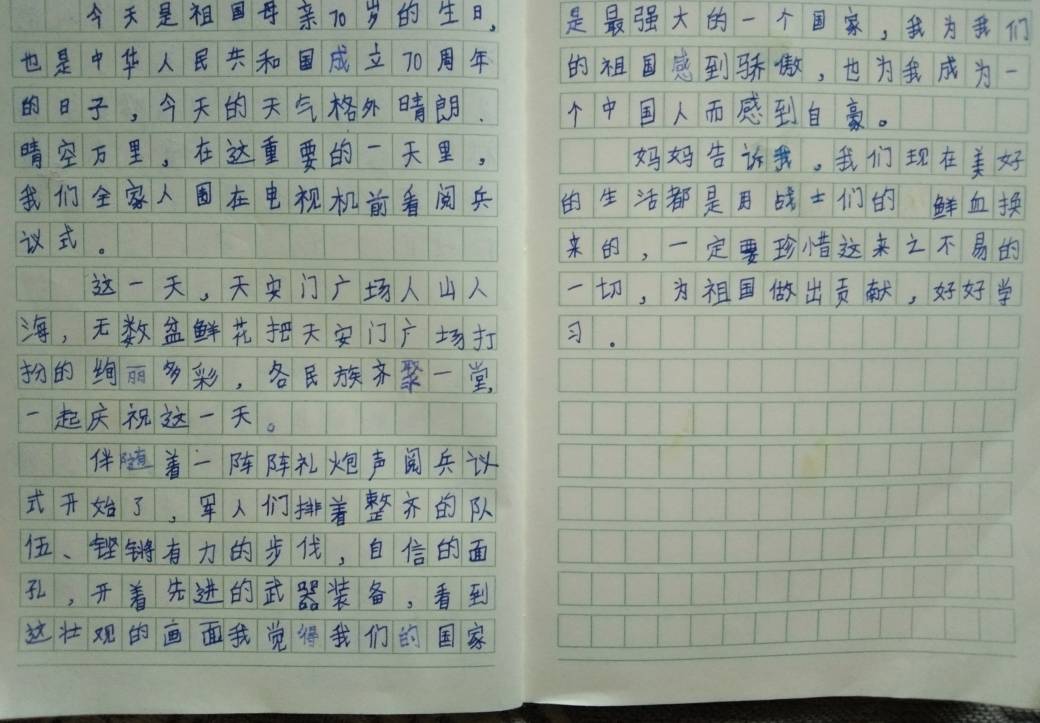 今天是祖国母亲70岁的生日，
也是中华人民共和国成立70周年
的日子，今天的天气格外晴朗.
晴空万里，在这重要的一天里，
我们全家人围在电视机前看阅兵
议式。
这一天，天安门广场人山人
海，无数盆鲜花把天安门广场打
扮的绚丽多彩，各民族齐聚一堂，
一起庆祝这一天。
伴随着一阵阵礼炮声阅兵议
式开始了，军人们排着整齐的队
伍、铿锵有力的步伐，自信的面
孔，开着先进的武器装备，看到
这壮观的画面我觉得我们的国家
是最强大的一个国家，我为我们
的祖国感到骄傲，也为我成为一
个中国人而感到自豪。
妈妈告诉我。我们现在美好
的生活都是用战士们的鲜血换
来的，一定要珍惜这来之不易的
一切，为祖国做出贡献，好好学
习。